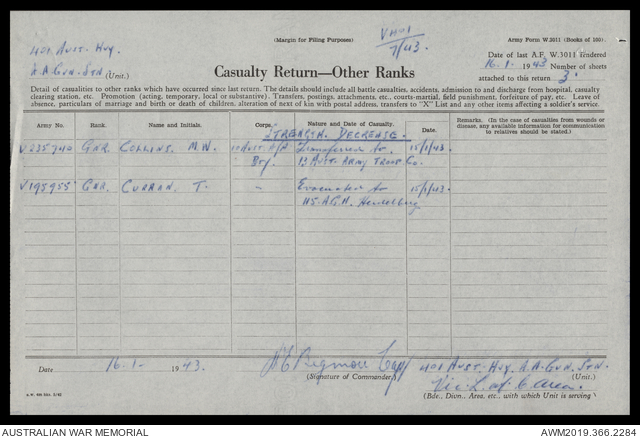 (Margin for Filing Purposes)
Army Form W.3011 (Books of 100).
VM01
7/43.
401 Aust. Hvy.
A.A Gun. Stn (Unit.)
Date of last A.F. W.3011 rendered
16.1. 1943 Number of sheets
attached to this return 3.
Casualty Return—Other Ranks
Detail of casualties to other ranks which have occurred since last return. The details should include all battle casualties, accidents, admission to and discharge from hospital, casualty
clearing station, etc. Promotion (acting, temporary, local or substantive). Transfers, postings, attachments, etc., courts-martial, field punishment, forfeiture of pay, etc. Leave of
absence, particulars of marriage and birth or death of children, alteration of next of kin with postal address, transfers to "X" List and any other items affecting a soldier's service.
Army No. Rank. Name and Initials. Corps. Nature and Date of Casualty. Date. Remarks. (In the case of casualties from wounds or
disease, any available information for communication
to relatives should be stated.)
STRENGTH. DECREASE.
V235740 Gnr. COLLINS. M.W. Aust. Transferred to 15/1/43.
Bty. 13 Aust. Army Troops Co.
V195955 Gnr. CURRAN. T. " Evacuated to 15/1/43.
115. A.G.H. Heidelberg
Date 16.1. 1943.
Capt
(Signature of Commander)
401 Aust. Hvy. A.A. Gun. Stn.
(Unit.)
Vic. L. of C. Area.
(Bde., Divn., Area, etc., with which Unit is serving)
AUSTRALIAN WAR MEMORIAL
AWM2019.366.2284